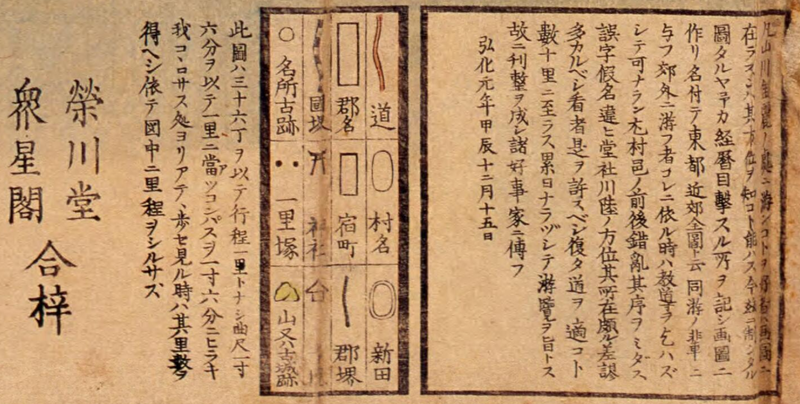 凡山川
在ラスレハ其方位ヲ知コト能ハス今玆ニ制シタル
圖タルヤ予カ経暦目撃スル所ヲ記シ画圖ニ
作リ名付テ東都近郊全圖ト云同游ノ輩ニ
与フ郊外ニ游フ者コレニ依ル時ハ教導ヲ乞ハズ
シテ可ナラン尤村邑ノ前後錯亂其序ヲミダス
誤字假名違ヒ堂社川陸ノ方位其所在頗ル差謬
多カルベシ看者是ヲ許スベシ復タ道ヲ適コト
數十里ニ至ラス累日ナラヅシテ游覽ヲ旨トス
故ニ利整ヲ成シ諸好事家ニ傳フ
弘化元年甲辰十二月十五日
道
村名
新田
郡名
宿町
郡堺
國堺
神社
名所古跡
一里塚
山又ハ古城跡
此圖ハ三十六丁ヲ以テ行程一里トナシ曲尺一寸
六分ヲ以テ一里ニ當ツコンパスヲ一寸六分ニヒラキ
我コヽロサス処ヨリアテ、歩セ見ル時ハ其里數ヲ
得ヘシ依テ図中ニ里程ヲシルサズ
榮川堂
衆星閣
合梓